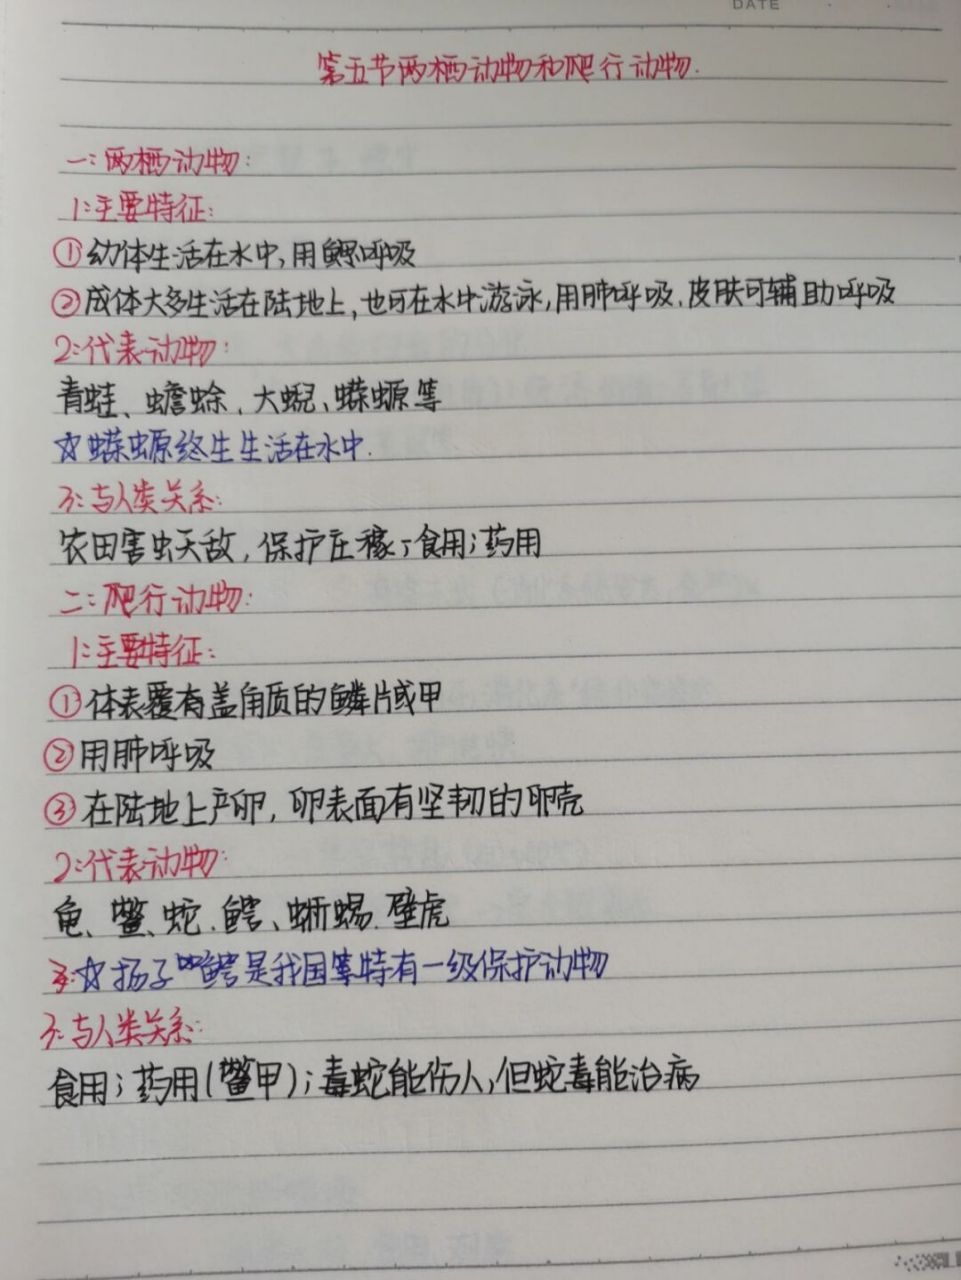 DATE
第五节两栖动物和爬行动物.
一:两栖动物:
1:主要特征:
①幼体生活在水中,用鳃呼吸
②成体大多生活在陆地上,也可在水中游泳,用肺呼吸.皮肤可辅助呼吸
2:代表动物:
青蛙、蟾蜍、大鲵、蝾螈等
☆蝾螈终生生活在水中.
3:与人类关系:
农田害虫天敌,保护庄稼;食用;药用
二:爬行动物:
1:主要特征:
①体表覆有盖角质的鳞片或甲
②用肺呼吸
③在陆地上产卵,卵表面有坚韧的卵壳
2:代表动物:
龟、鳖、蛇、鳄、蜥蜴.壁虎
☆扬子鳄是我国特有一级保护动物
3:与人类关系:
食用;药用(鳖甲);毒蛇能伤人,但蛇毒能治病